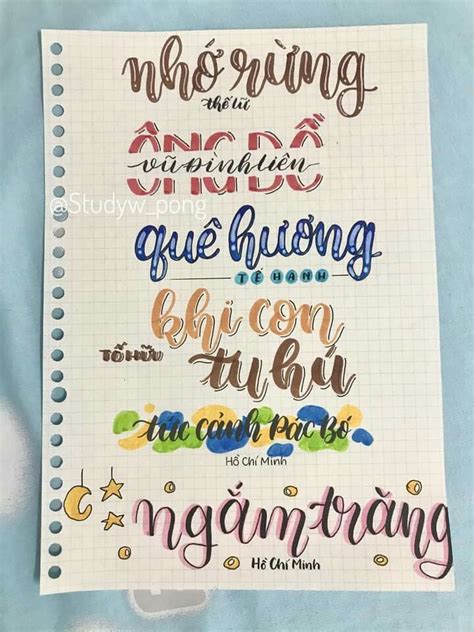 nhớ rừng
thế lữ
ÔNG ĐỒ
vũ đình liên
@Studyw_pong
quê hương
TẾ HANH
khi con
TỐ HỮU tu hú
tức cảnh Pác Bó
Hồ Chí Minh
ngắm trăng
Hồ Chí Minh